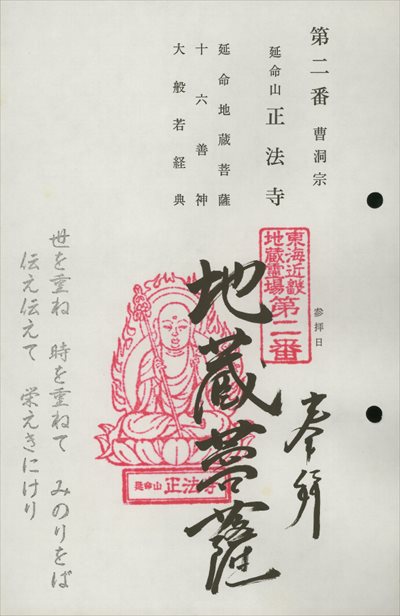 第二番 曹洞宗
延命山 正法寺
延命地蔵菩薩
十六善神
大般若経典
参拝日
奉拝
東海近畿
地蔵霊場
第二番
地蔵菩薩
延命山 正法寺
世を重ね 時を重ねて みのりをば
伝え伝えて 栄えきにけり